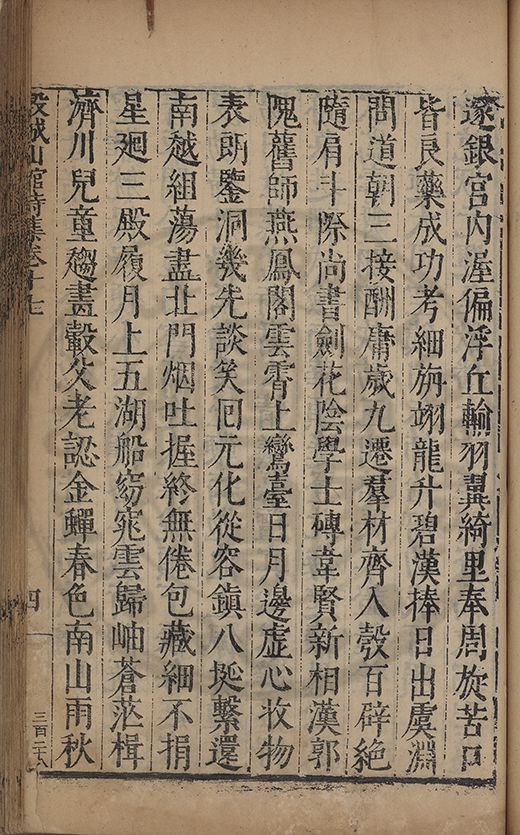 邃銀宮內渥偏浮丘輸羽翼綺里奉周旋苦口
皆良藥成功考細旃翊龍升碧漢捧日出虞淵
問道朝三接酬庸歲九遷羣材齊入彀百辟絕
隨肩斗際尚書劍花陰學士磚韋賢新相漢郭
隗舊師燕鳳閣雲霄上鸞臺日月邊虛心收物
表朗鑒洞幾先談笑囘元化從容鎮八挻繫還
南越組蕩盡北門烟吐握終無倦包藏細不捐
星廻三殿履月上五湖船窈窕雲歸岫蒼茫楫
濟川兒童趨畫轂父老認金蟬春色南山雨秋
穀城山館詩集卷十七
四
三百二十八